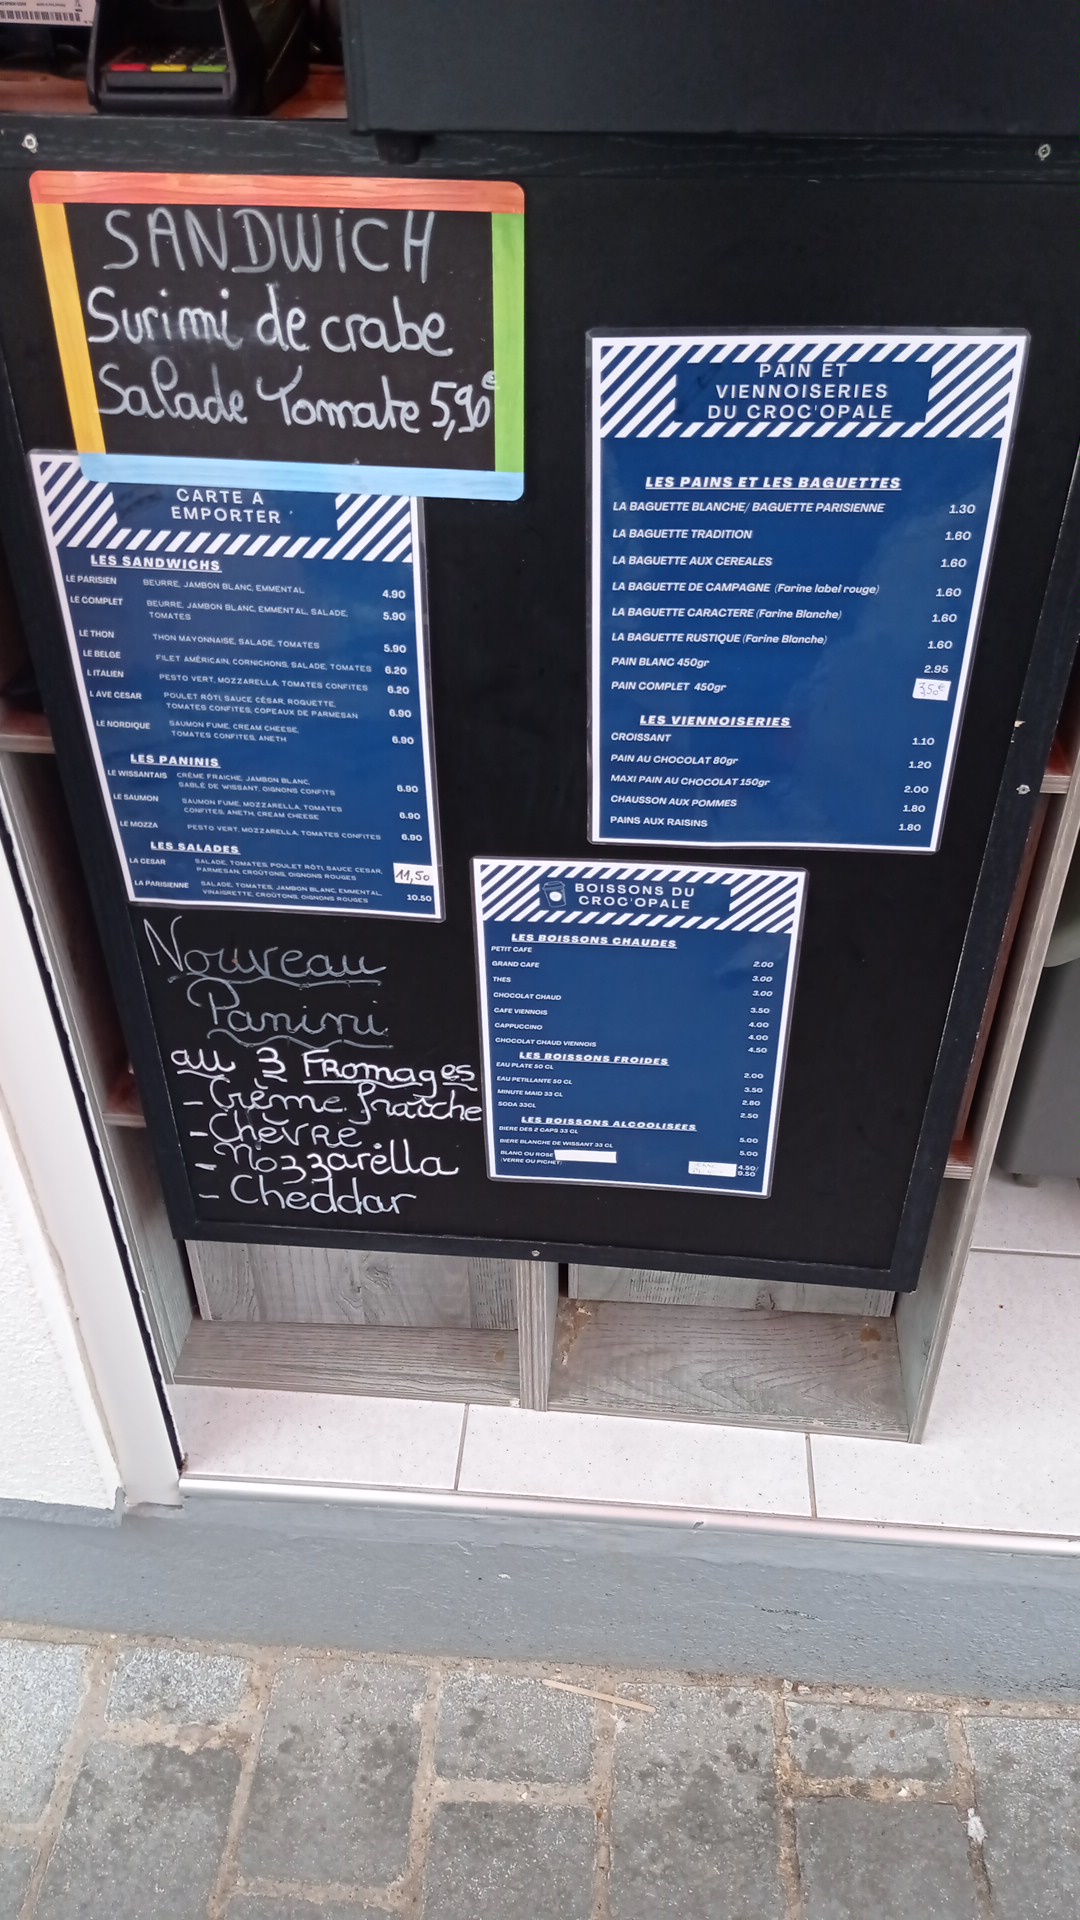 SANDWICH
Surimi de crabe
Salade Tomate 5,90€
CARTE A
EMPORTER
LES SANDWICHS
LE PARISIEN BEURRE, JAMBON BLANC, EMMENTAL 4.90
LE COMPLET BEURRE, JAMBON BLANC, EMMENTAL, SALADE,
TOMATES 5.90
LE THON THON MAYONNAISE, SALADE, TOMATES 5.90
LE BELGE FILET AMÉRICAIN, CORNICHONS, SALADE, TOMATES 6.20
L ITALIEN PESTO VERT, MOZZARELLA, TOMATES CONFITES 6.20
L AVE CESAR POULET RÔTI, SAUCE CÉSAR, ROQUETTE,
TOMATES CONFITES, COPEAUX DE PARMESAN 6.90
LE NORDIQUE SAUMON FUME, CREAM CHEESE,
TOMATES CONFITES, ANETH 6.90
LES PANINIS
LE WISSANTAIS CRÈME FRAICHE, JAMBON BLANC,
SABLÉ DE WISSANT, OIGNONS CONFITS 6.90
LE SAUMON SAUMON FUME, MOZZARELLA, TOMATES
CONFITES, ANETH, CREAM CHEESE 6.90
LE MOZZA PESTO VERT, MOZZARELLA, TOMATES CONFITES 6.90
LES SALADES
LA CESAR SALADE, TOMATES, POULET RÔTI, SAUCE CESAR,
PARMESAN, CROÛTONS, OIGNONS ROUGES 11,50
LA PARISIENNE SALADE, TOMATES, JAMBON BLANC, EMMENTAL,
VINAIGRETTE, CROÛTONS, OIGNONS ROUGES 10.50
Nouveau
Panini
au 3 Fromages
- Crème fraîche
- Chèvre
- Mozzarella
- Cheddar
PAIN ET
VIENNOISERIES
DU CROC'OPALE
LES PAINS ET LES BAGUETTES
LA BAGUETTE BLANCHE/ BAGUETTE PARISIENNE 1.30
LA BAGUETTE TRADITION 1.60
LA BAGUETTE AUX CEREALES 1.60
LA BAGUETTE DE CAMPAGNE (Farine label rouge) 1.60
LA BAGUETTE CARACTERE (Farine Blanche) 1.60
LA BAGUETTE RUSTIQUE (Farine Blanche) 1.60
PAIN BLANC 450gr 2.95
PAIN COMPLET 450gr 3,50€
LES VIENNOISERIES
CROISSANT 1.10
PAIN AU CHOCOLAT 80gr 1.20
MAXI PAIN AU CHOCOLAT 150gr 2.00
CHAUSSON AUX POMMES 1.80
PAINS AUX RAISINS 1.80
BOISSONS DU
CROC'OPALE
LES BOISSONS CHAUDES
PETIT CAFE 2.00
GRAND CAFE 3.00
THES 3.00
CHOCOLAT CHAUD 3.50
CAFE VIENNOIS 4.00
CAPPUCCINO 4.00
CHOCOLAT CHAUD VIENNOIS 4.50
LES BOISSONS FROIDES
EAU PLATE 50 CL 2.00
EAU PETILLANTE 50 CL 3.50
MINUTE MAID 33 CL 2.80
SODA 33CL 2.50
LES BOISSONS ALCOOLISÉES
BIERE DES 2 CAPS 33 CL 5.00
BIERE BLANCHE DE WISSANT 33 CL 5.00
BLANC OU ROSE 4.50/
(VERRE OU PICHET) 9.50